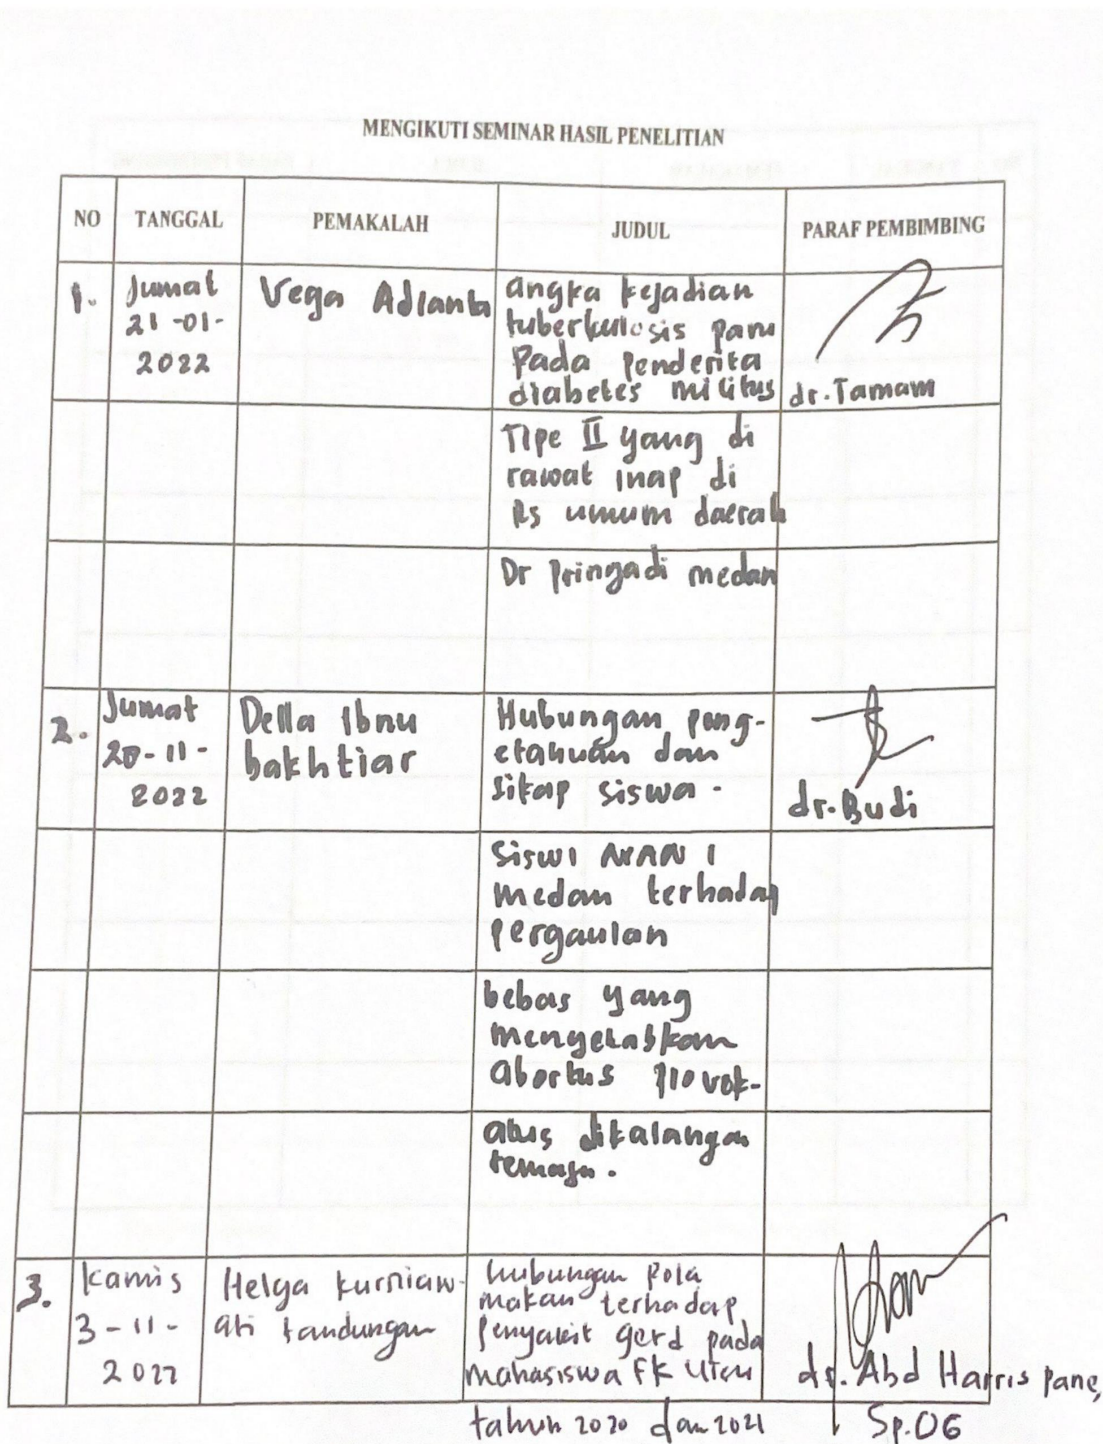 MENGIKUTI SEMINAR HASIL PENELITIAN
NO TANGGAL PEMAKALAH JUDUL PARAF PEMBIMBING
1. Jumat 21-01-2022 Vega Adianta angka kejadian
tuberkulosis paru
Pada Penderita
diabetes militus dr. Tamam
Tipe II yang di
rawat inap di
Rs umum daerah
Dr Pringadi medan
2. Jumat
20-11-
2022
Della Ibnu
bakhtiar
Hubungan peng-
etahuan dan
sikap siswa -
dr. Budi
Siswi MAN 1
medan terhadap
pergaulan
bebas yang
menyebabkan
abortus provok-
atus dikalangan
remaja.
3. Kamis
3-11-
2022
Helga kurniaw-
ati tandungan
hubungan Pola
makan terhadap
Penyakit gerd pada
mahasiswa FK
tahun 2020 dan 2021
dr. Abd Harris pane,
Sp.OG